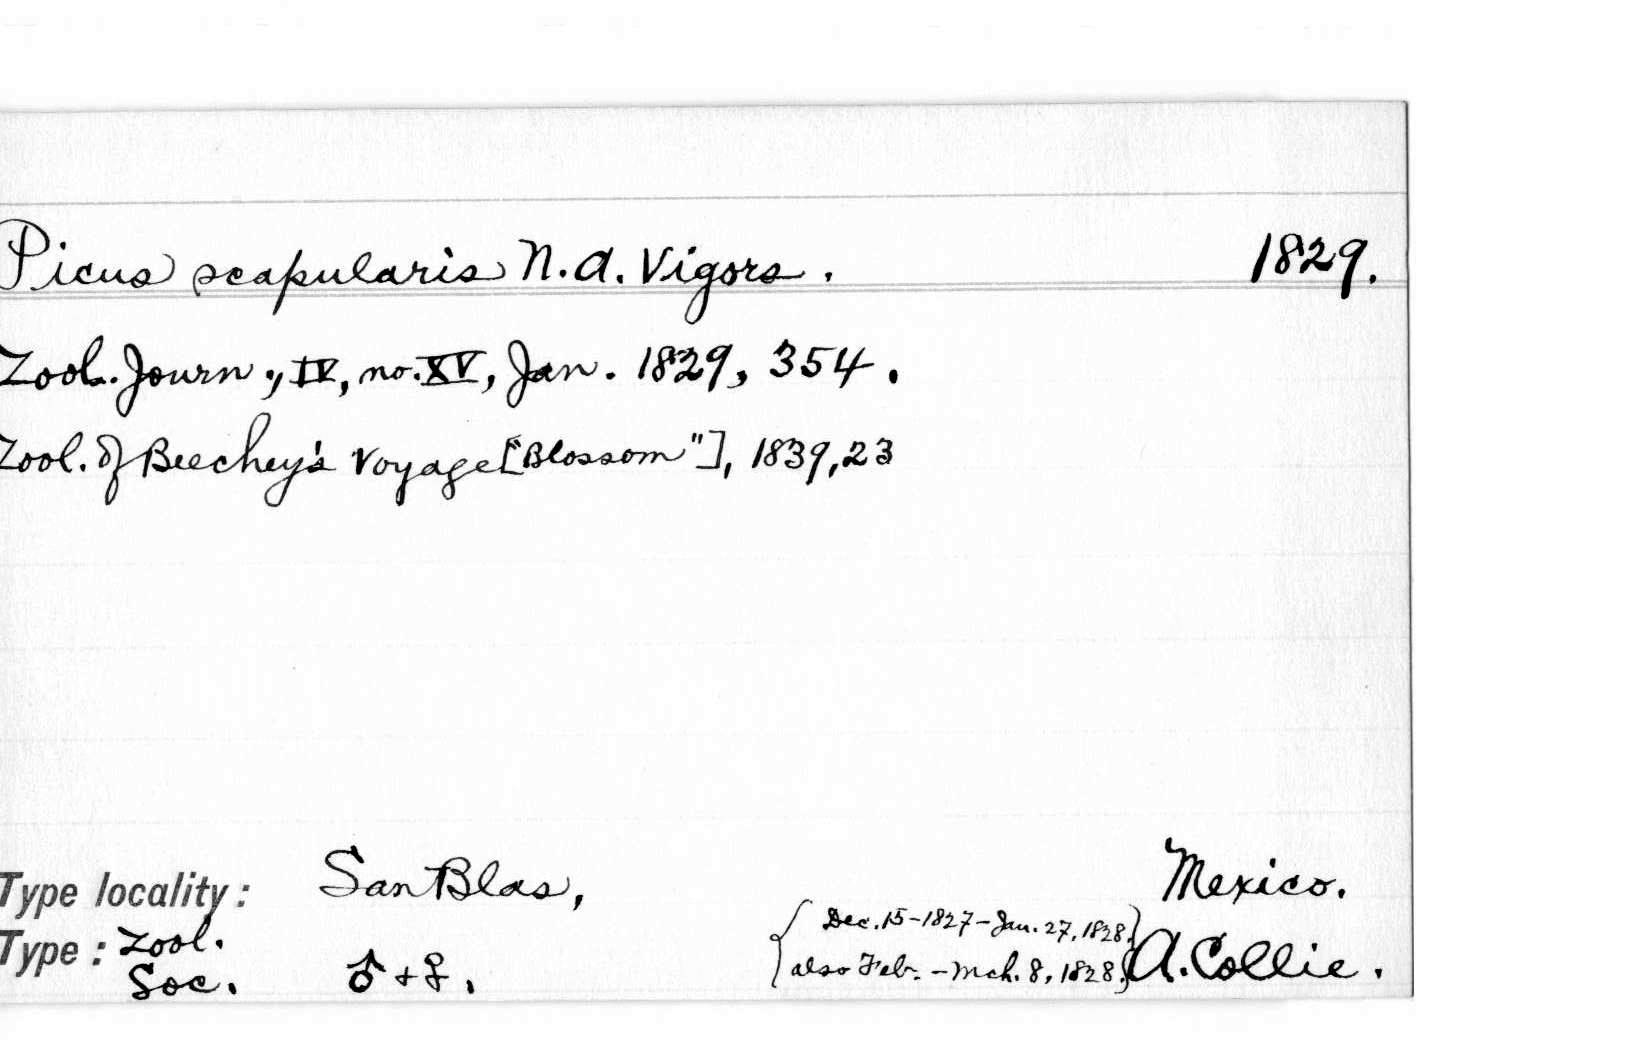 Picus scapularis N.A. Vigors. 1829.
Zool. Journ., IV, no. XV, Jan. 1829, 354.
Zool. of Beechey's Voyage ["Blossom"], 1839, 23
Type locality: San Blas, Mexico.
Type: Zool. Soc. ♂ + ♀. { Dec. 15-1827-Jan. 27, 1828. also Feb. - Mch. 8, 1828. } A. Collie.